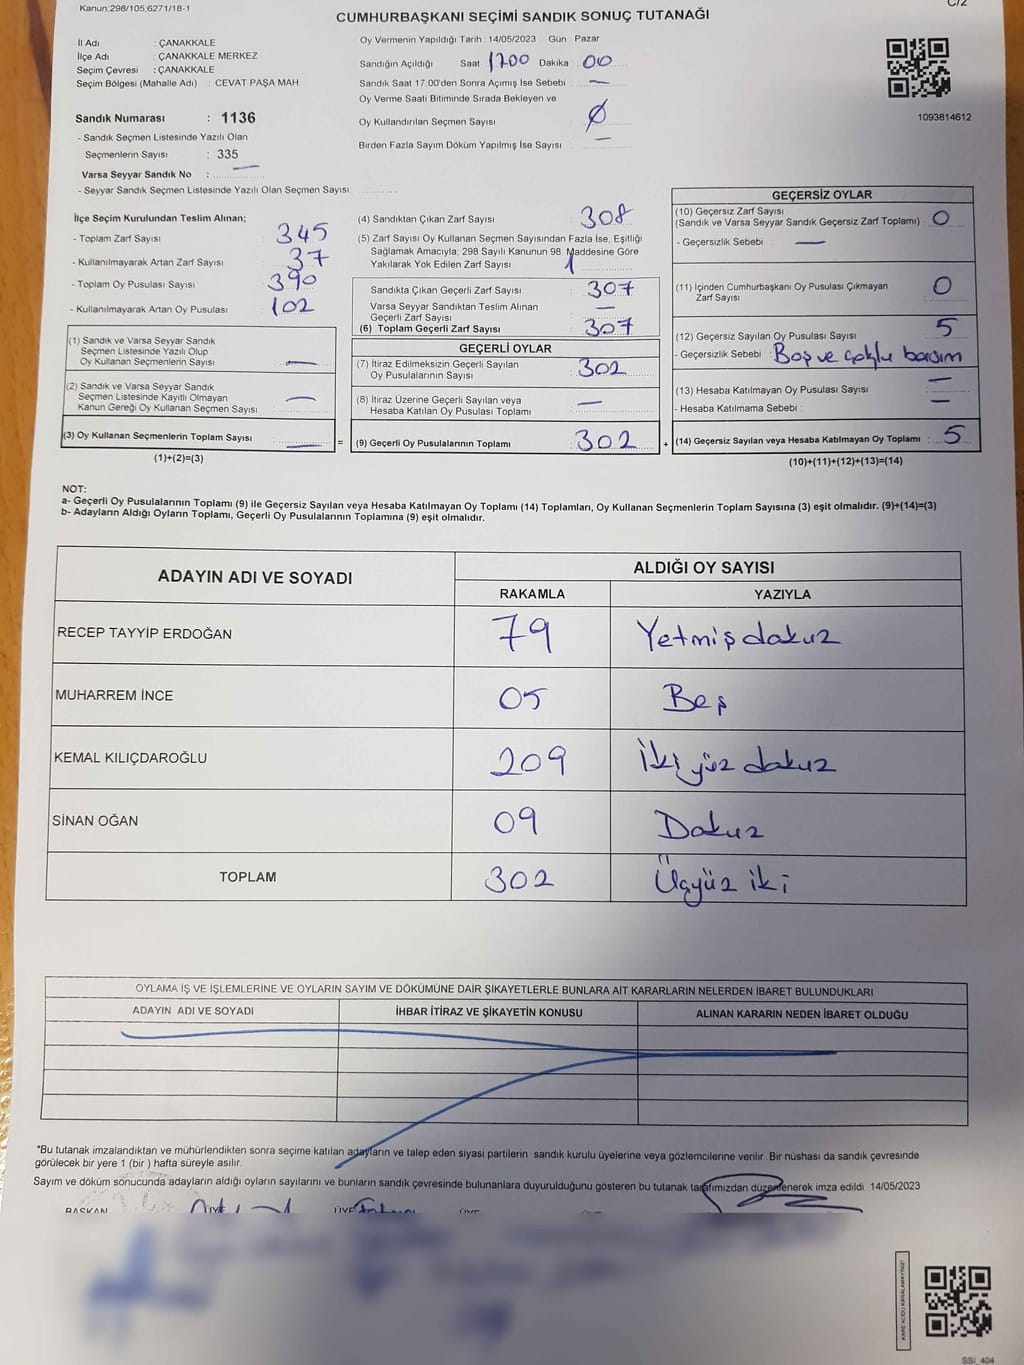 Kanun;298/105,6271/18-1
C/2
CUMHURBAŞKANI SEÇİMİ SANDIK SONUÇ TUTANAĞI
İl Adı : ÇANAKKALE
İlçe Adı : ÇANAKKALE MERKEZ
Seçim Çevresi : ÇANAKKALE
Seçim Bölgesi (Mahalle Adı) : CEVAT PAŞA MAH
Sandık Numarası : 1136
- Sandık Seçmen Listesinde Yazılı Olan
Seçmenlerin Sayısı : 335
Varsa Seyyar Sandık No : —
- Seyyar Sandık Seçmen Listesinde Yazılı Olan Seçmen Sayısı:
Oy Vermenin Yapıldığı Tarih : 14/05/2023 Gün : Pazar
Sandığın Açıldığı Saat 1700 Dakika : 00
Sandık Saat 17:00'den Sonra Açımış İse Sebebi : —
Oy Verme Saati Bitiminde Sırada Bekleyen ve
Oy Kullandırılan Seçmen Sayısı : Ø
Birden Fazla Sayım Döküm Yapılmış İse Sayısı : —
1093814612
İlçe Seçim Kurulundan Teslim Alınan;
- Toplam Zarf Sayısı : 345
- Kullanılmayarak Artan Zarf Sayısı : 37
- Toplam Oy Pusulası Sayısı : 390
- Kullanılmayarak Artan Oy Pusulası : 102
(1) Sandık ve Varsa Seyyar Sandık
Seçmen Listesinde Yazılı Olup
Oy Kullanan Seçmenlerin Sayısı : —
(2) Sandık ve Varsa Seyyar Sandık
Seçmen Listesinde Kayıtlı Olmayan
Kanun Gereği Oy Kullanan Seçmen Sayısı : —
(3) Oy Kullanan Seçmenlerin Toplam Sayısı : — =
(1)+(2)=(3)
(4) Sandıktan Çıkan Zarf Sayısı : 308
(5) Zarf Sayısı Oy Kullanan Seçmen Sayısından Fazla İse, Eşitliği
Sağlamak Amacıyla; 298 Sayılı Kanunun 98. Maddesine Göre
Yakılarak Yok Edilen Zarf Sayısı : 1
Sandıkta Çıkan Geçerli Zarf Sayısı : 307
Varsa Seyyar Sandıktan Teslim Alınan
Geçerli Zarf Sayısı : —
(6) Toplam Geçerli Zarf Sayısı : 307
GEÇERLİ OYLAR
(7) İtiraz Edilmeksizin Geçerli Sayılan
Oy Pusulalarının Sayısı : 302
(8) İtiraz Üzerine Geçerli Sayılan veya
Hesaba Katılan Oy Pusulası Toplamı : —
(9) Geçerli Oy Pusulalarının Toplamı : 302 +
GEÇERSİZ OYLAR
(10) Geçersiz Zarf Sayısı
(Sandık ve Varsa Seyyar Sandık Geçersiz Zarf Toplamı) : 0
- Geçersizlik Sebebi : —
(11) İçinden Cumhurbaşkanı Oy Pusulası Çıkmayan
Zarf Sayısı : 0
(12) Geçersiz Sayılan Oy Pusulası Sayısı : 5
- Geçersizlik Sebebi : Boş ve çoklu basım
(13) Hesaba Katılmayan Oy Pusulası Sayısı : —
- Hesaba Katılmama Sebebi : —
(14) Geçersiz Sayılan veya Hesaba Katılmayan Oy Toplamı : 5
(10)+(11)+(12)+(13)=(14)
NOT:
a- Geçerli Oy Pusulalarının Toplamı (9) ile Geçersiz Sayılan veya Hesaba Katılmayan Oy Toplamı (14) Toplamları, Oy Kullanan Seçmenlerin Toplam Sayısına (3) eşit olmalıdır. (9)+(14)=(3)
b- Adayların Aldığı Oyların Toplamı, Geçerli Oy Pusulalarının Toplamına (9) eşit olmalıdır.
ADAYIN ADI VE SOYADI
ALDIĞI OY SAYISI
RAKAMLA YAZIYLA
RECEP TAYYİP ERDOĞAN 79 Yetmiş dokuz
MUHARREM İNCE 05 Beş
KEMAL KILIÇDAROĞLU 209 İki yüz dokuz
SİNAN OĞAN 09 Dokuz
TOPLAM 302 Üçyüz iki
OYLAMA İŞ VE İŞLEMLERİNE VE OYLARIN SAYIM VE DÖKÜMÜNE DAİR ŞİKAYETLERLE BUNLARA AİT KARARLARIN NELERDEN İBARET BULUNDUKLARI
ADAYIN ADI VE SOYADI İHBAR İTİRAZ VE ŞİKAYETİN KONUSU ALINAN KARARIN NEDEN İBARET OLDUĞU
*Bu tutanak imzalandıktan ve mühürlendikten sonra seçime katılan adayların ve talep eden siyasi partilerin sandık kurulu üyelerine veya gözlemcilerine verilir. Bir nüshası da sandık çevresinde
görülecek bir yere 1 (bir) hafta süreyle asılır.
Sayım ve döküm sonucunda adayların aldığı oyların sayılarını ve bunların sandık çevresinde bulunanlara duyurulduğunu gösteren bu tutanak tarafımızdan düzenlenerek imza edildi. 14/05/2023
BAŞKAN ÜYE ÜYE ÜYE
SSİ_404